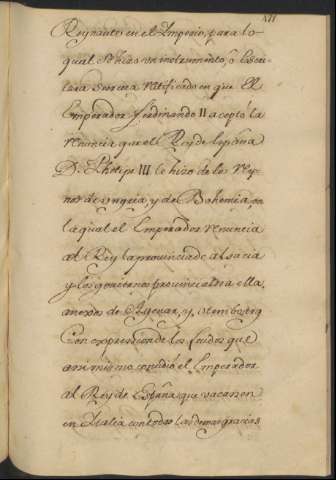 Reynantes en el Imperio, para lo
qual se hizo un instrumento, o
secreta ratificado en que el
Emperador ferdinando II acepto la
renuncia que el Rey de españa
D. Phelipe III le hizo de los rey
nos de ungria, y de Bohemia, en
la qual el Emperador renuncia
al Rey la provincia de alsacia
y los goviernos provinciales a ella
anexos de
Con expression de los feudos que
asi mismo concedió el Emperador
al Rey de España que vacassen
en Italia con todas las demas gracias